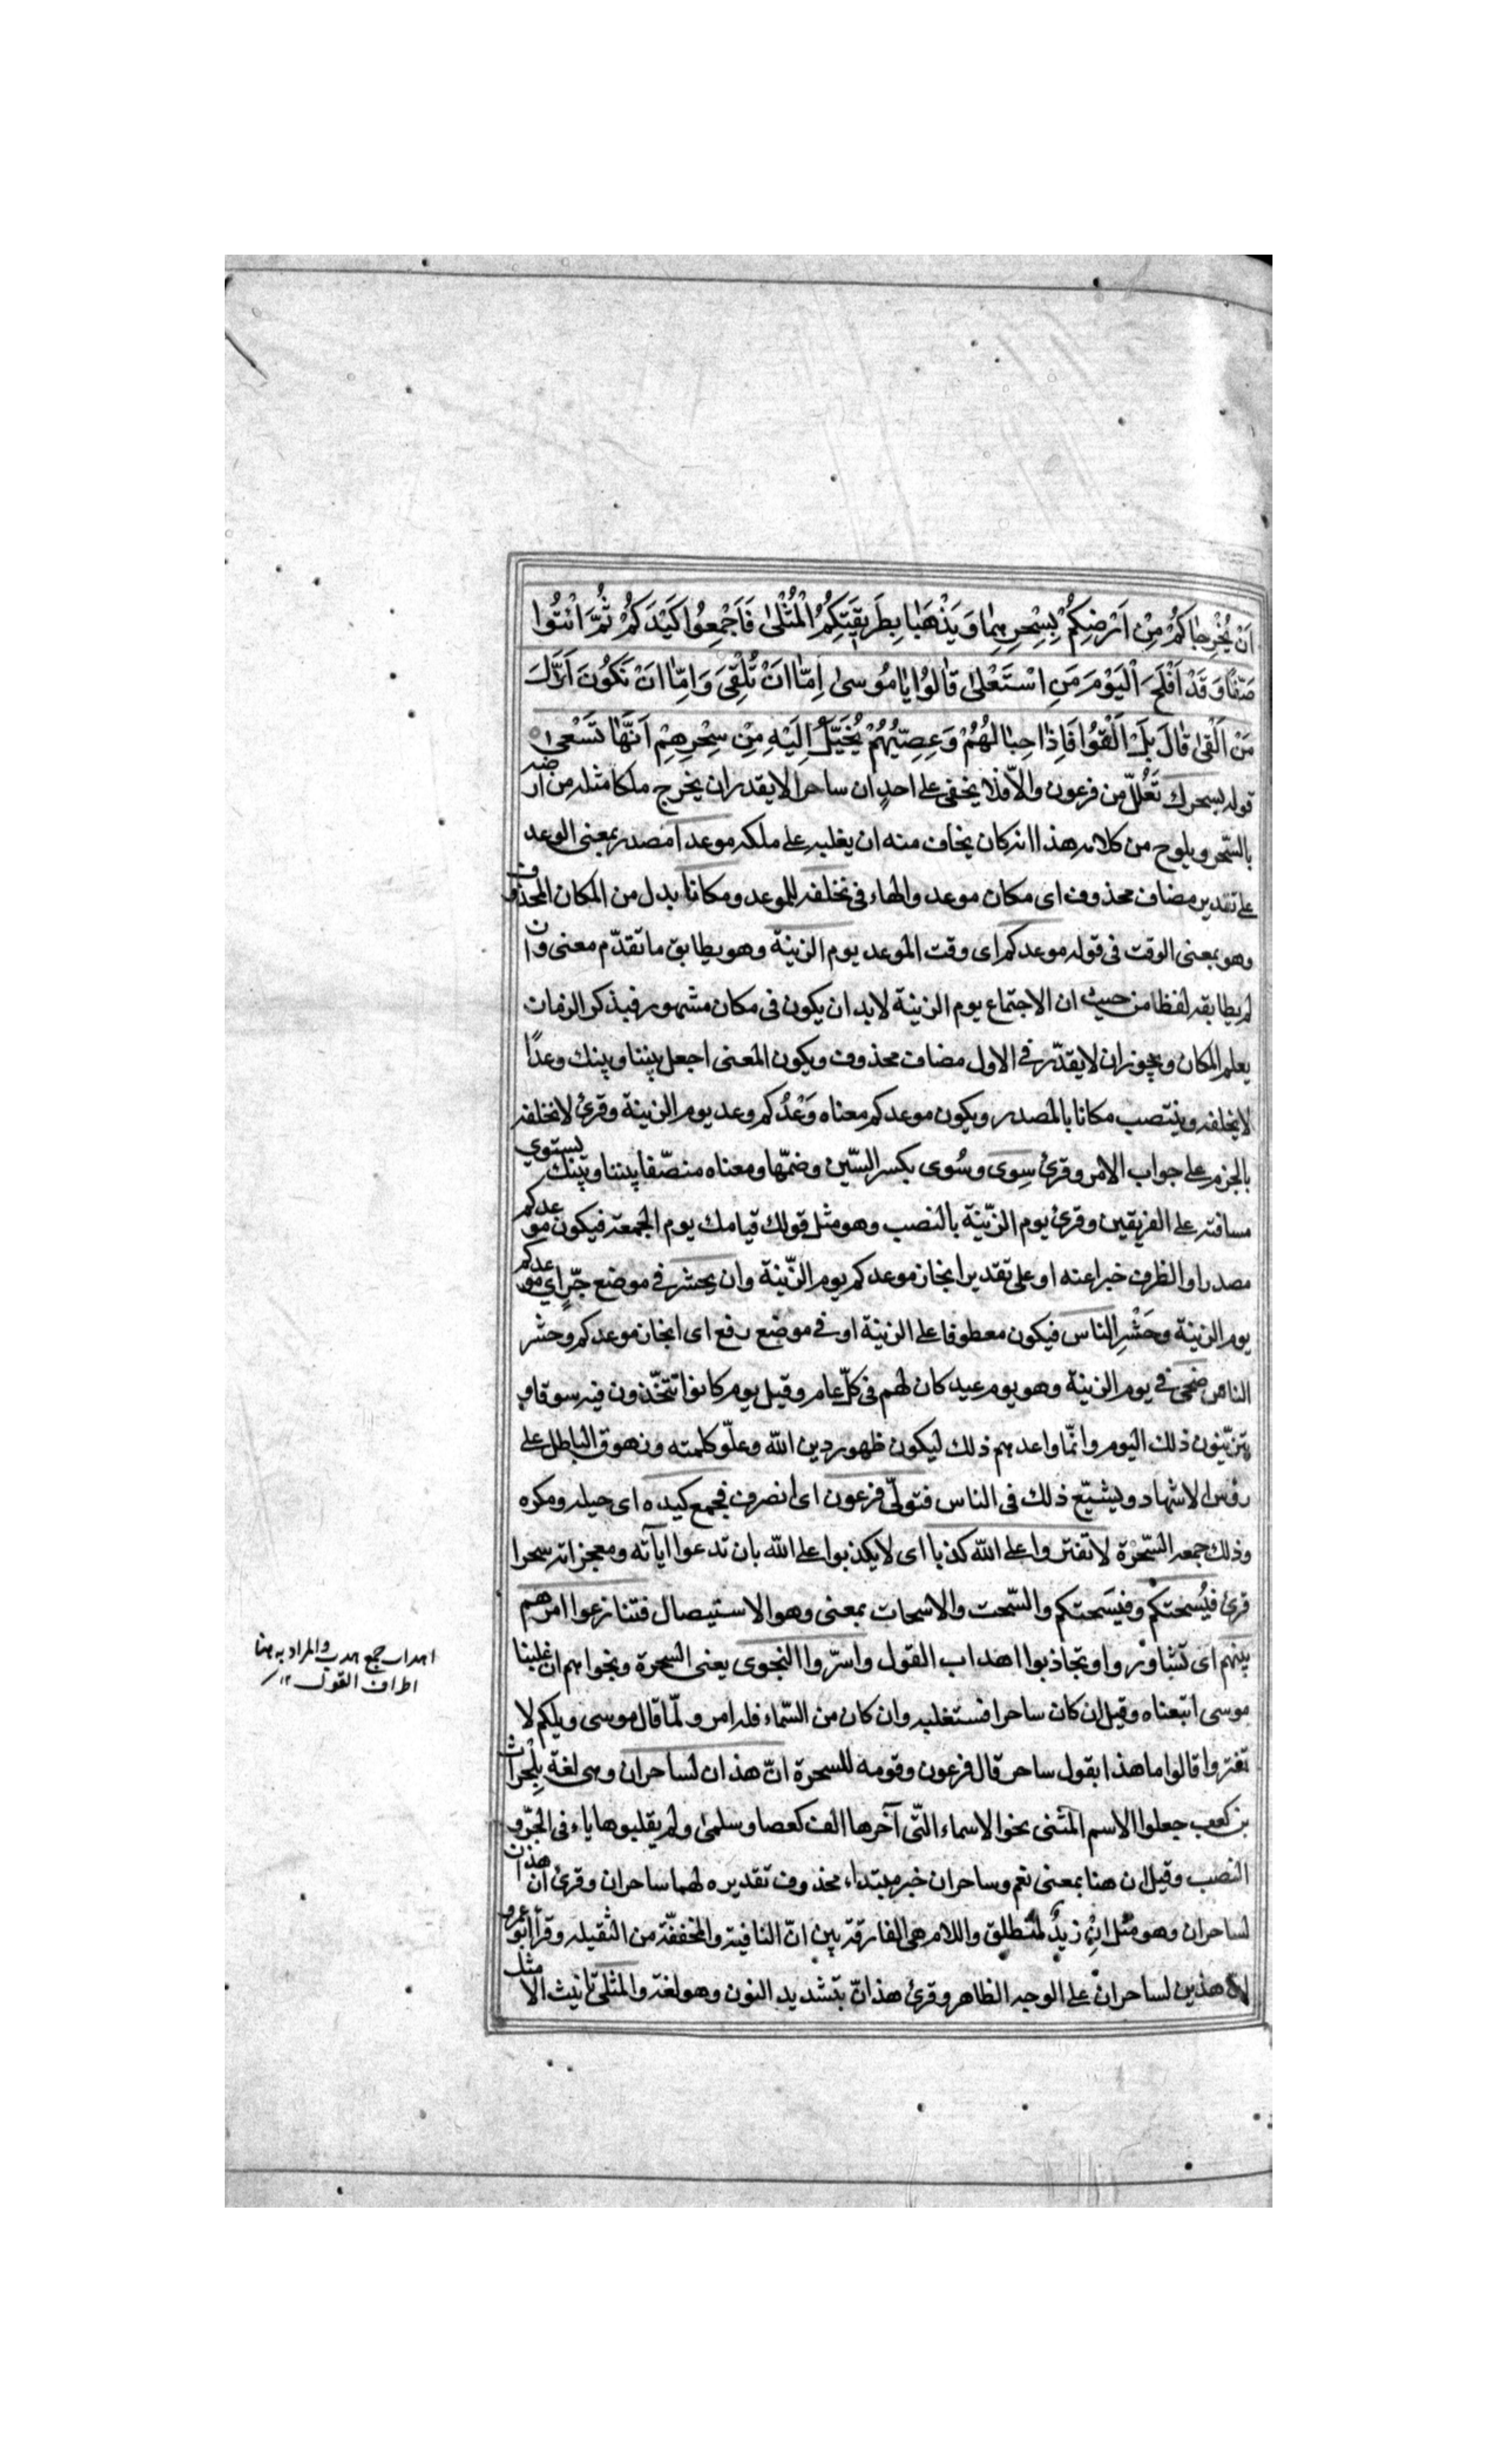 اَنْ يُخْرِجٰاكُمْ مِنْ اَرْضِكُمْ بِسِحْرِهِمٰا وَيَذْهَبٰا بِطَرِيقَتِكُمُ الْمُثْلىٰ فَاَجْمِعُوا كَيْدَكُمْ ثُمَّ ائْتُوا
صَفّاً وَقَدْ اَفْلَحَ الْيَوْمَ مَنِ اسْتَعْلىٰ قٰالُوا يٰا مُوسىٰ اِمّٰا اَنْ تُلْقِىَ وَاِمّٰا اَنْ نَكُونَ اَوَّلَ
مَنْ اَلْقىٰ قٰالَ بَلْ اَلْقُوا فَاِذٰا حِبٰالُهُمْ وَعِصِيُّهُمْ يُخَيَّلُ اِلَيْهِ مِنْ سِحْرِهِمْ اَنَّهٰا تَسْعىٰ
قوله بسحرك تَعَلُّلٌ من فرعون والّا فلا يخفى على احدٍ ان ساحرا لا يقدر ان يخرج ملكا مثله من ارضه
بالسّحر ويلوح من كلامه هذا انه كان يخاف منه ان يغلبه على ملكه موعدا مصدر بمعنى الوعد
على تقدير مضاف محذوف اى مكان موعد والهاء فى نخلفه للموعد ومكانا بدل من المكان المحذوف
وهو بمعنى الوقت فى قوله موعدكم اى وقت الموعد يوم الزينة وهو يطابق ما تقدّم معنى وان
لم يطابقه لفظا من حيث ان الاجتماع يوم الزينة لابد ان يكون فى مكان مشهور فبذكر الزمان
يعلم المكان ويجوز ان لا يقدّر فى الاول مضاف محذوف ويكون المعنى اجعل بيننا وبينك وعدًا
لا يخلفه وينتصب مكانا بالمصدر ويكون موعدكم معناه وَعْدُكم وعد يوم الزينة وقرئ لا نخلفه
بالجزم على جواب الامر وقرئ سِوى وسُوى بكسر السّين وضمّها ومعناه منصّفا بيننا وبينك يستوي
مسافته على الفريقين وقرئ يوم الزّينة بالنصب وهو مثل قولك قيامك يوم الجمعة فيكون موعدكم
مصدرا والظرف خبرا عنه او على تقدير انجاز موعدكم يوم الزّينة وان يحشر فى موضع جّرٍ اي موعدكم
يوم الزينة وحَشْرِ الناس فيكون معطوفا على الزينة او فى موضع رفع اى انجاز موعدكم وحشر
الناس ضحى فى يوم الزينة وهو يوم عيد كان لهم فى كلّ عام وقيل يوم كانوا تتخّذون فيه سوقا و
يتزيّنون ذلك اليوم وانّما واعدهم ذلك ليكون ظهور دين الله وعلّو كلمته وزهوق الباطل على
رؤس الاشهاد ويشيّع ذلك فى الناس فتولّى فرعون اى انصرف فجمع كيده اى حيله ومكره
وذلك جمعه السّحَرَة لا تفتروا على الله كذبا اى لا يكذبوا على الله بان تدعوا ايآته ومعجزاته سحرا
قرئ فيُسحتكم وفيَسحتكم والسّحت والاسحات بمعنى وهو الاستيصال فتنازعوا امرهم
بينهم اى تشاوروا وتجاذبوا اهداب القول واسرّوا النجوى يعنى السحرة ونجواهم ان غلبنا
موسى اتبعناه وقيل ان كان ساحرا فستغلبه وان كان من السّماء فله امر ولمّا قال موسى ويلكم لا
تفتروا قالوا ما هذا بقول ساحر قال فرعون وقومه للسحرة انّ هذان لساحران وهى لغة بِلْحراث
بن كعب جعلوا الاسم المثنى نحو الاسماء التّى آخرها الف كعصا وسلمى ولم يقلبوها ياء فى الجّر و
النصب وقيل ان هنا بمعنى نعم وساحران خبر مبتداء محذوف تقديره لهما ساحران وقرئ ان هذان
لساحران وهو مثل انْ زيدٌ لمنطلق واللام هى الفارقة بين انّ النافية والمخففّة من الثقيله وقرأ ابو عمرو
هذين لساحران على الوجه الظاهر وقرئ هذانّ بتشديد النون وهو لغة والمثلى تانيث الامثل
اهداب جمع هدب والمراد به هنا
اطراف القول ١٢